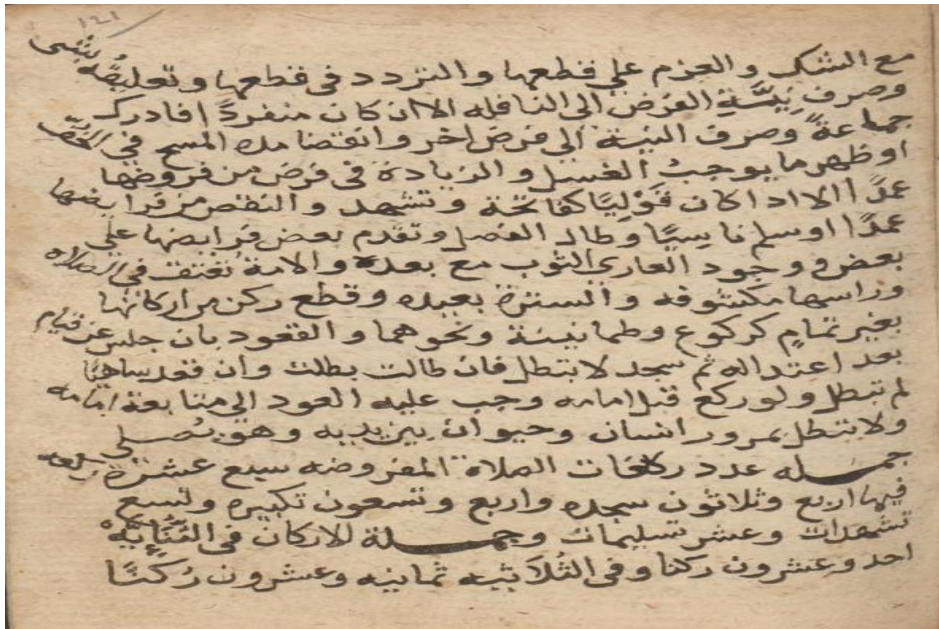 ١٤١
مع الشك والعزم على قطعها والتردد في قطعها وتعليقه بشى
وصرف نيَّةِ الفرض الى النافله الا ان كان منفردًا فادرك
جماعةً وصرف النية الى فرض اخر وانقضا مده المسح في الخفّ
او ظهر ما يوجبُ الغسل والزيادة في فرض من فروضها
عمدًا الا اذا كان قَوْلِيًّا كفاتحة وتشهد والنقص من فرايضها
عمدًا او سلم ناسِيًا وطال الفصل وتقدم بعض فرايضها على
بعض ووجود العاري الثوب مع بعده والامة تعتق في الصلاه
وراسها مكشوفه والسترة بعيده وقطع ركن من اركانها
بغير تمام كركوع وطمانينة ونحوهما والقعود بان جلس عن قيام
بعد اعتداله ثم سجد لا تبطل فان طالت بطلت وان قعد ساهيًا
لم تبطل ولو ركع قبل امامه وجب عليه العود الى متابعة امامه
ولا تبطل بمرور انسان وحيوان بين يديه وهو يُصلى
جمله عدد ركعات الصلاة المفروضه سبع عشرة ركعه
فيها اربع وثلاثون سجده واربع وتسعون تكبيره وتسع
تشهدات وعشر تسليمات وجملة الاركان في الثُنَّائِيَّه
احد وعشرون ركنا وفي الثُلاَثيه ثمانيه وعشرون رُكنًا